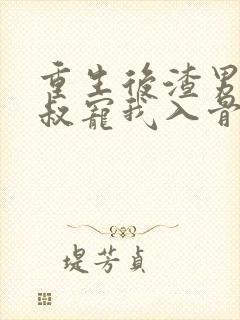 重生後渣男
叔寵我入骨
堤芳貞